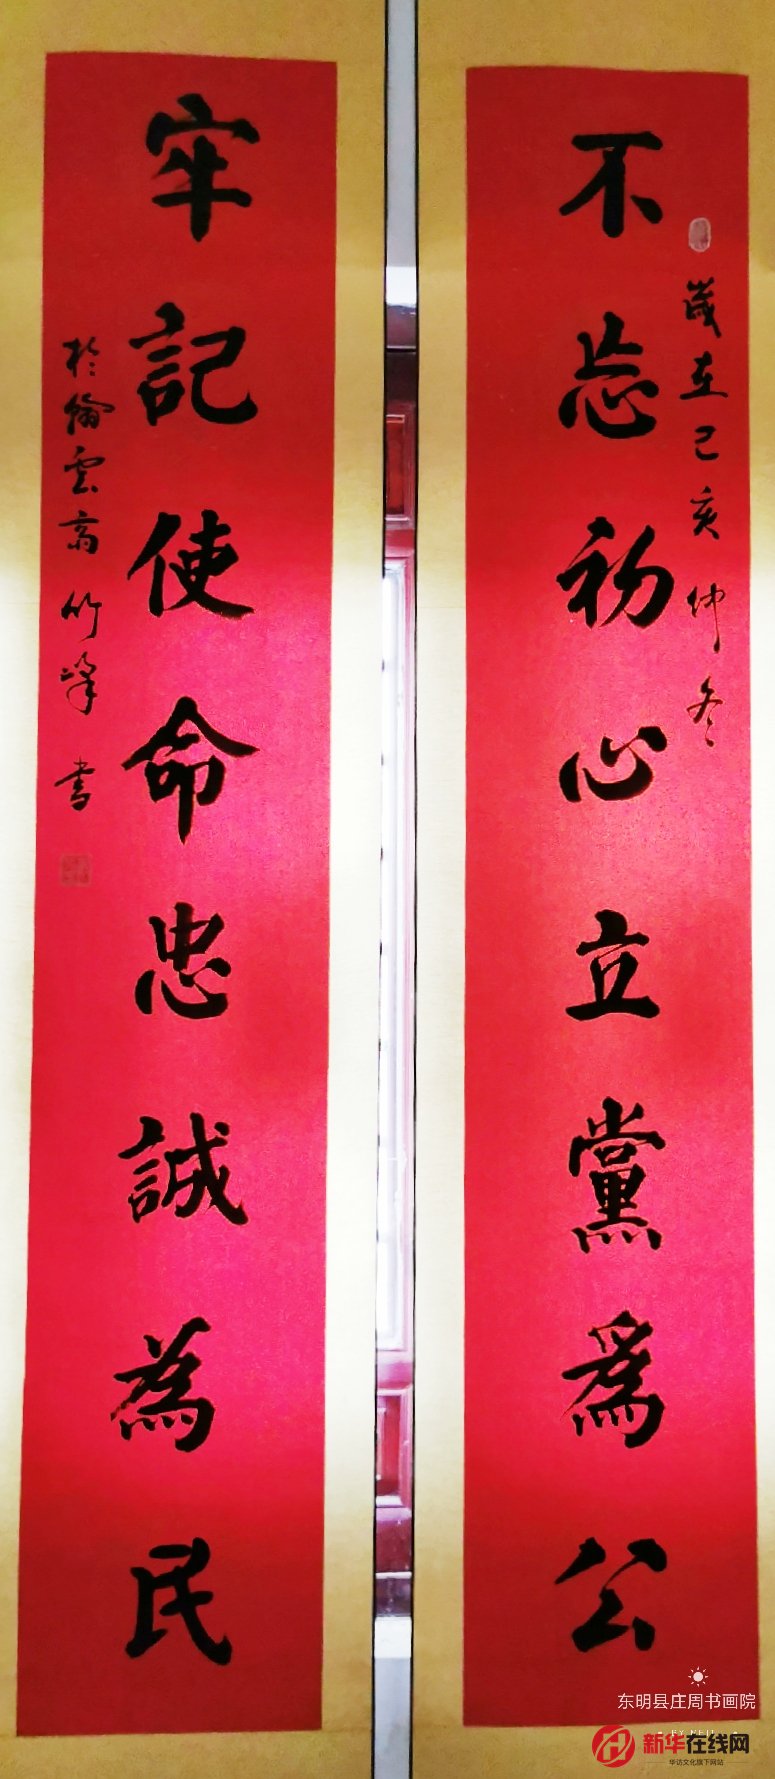 不忘初心立黨爲公
歲在己亥仲冬
牢記使命忠誠為民
於翰雲斋竹峰书
东明县庄周书画院
新华在线网
华访文化旗下网站